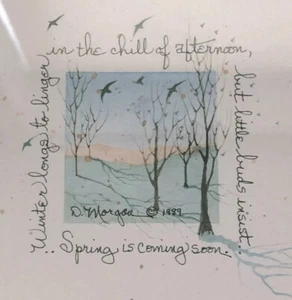 Winter longs to linger
in the chill of afternoon,
but little buds insist...
..Spring is coming soon.
D. Morgan © 1989